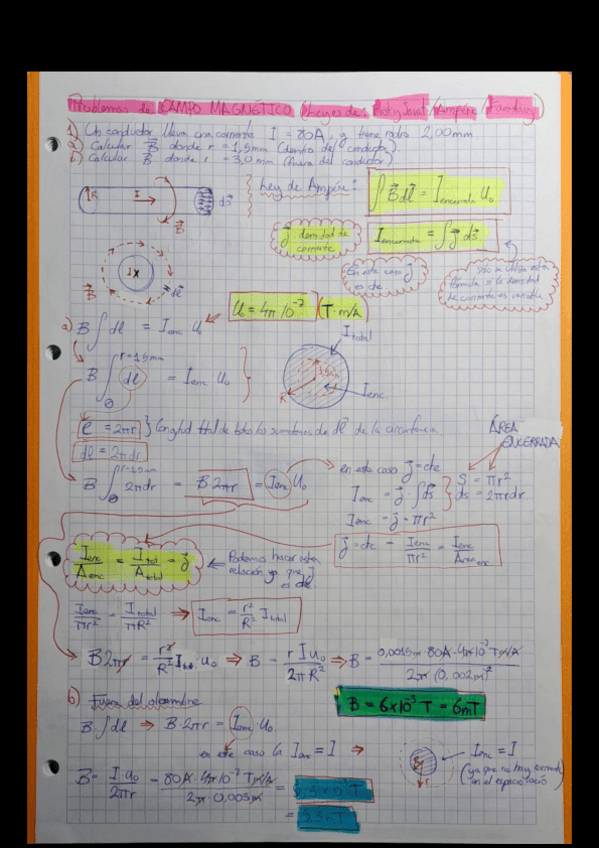 Problemas de CAMPO MAGNÉTICO (Leyes de: Biot y Savat / Ampére / Faraday)
1) Un conductor lleva una corriente I = 80A, y tiene radio 2,00mm
a) Calcular B⃗ donde r = 1,5mm (dentro del conductor)
b) Calcular B⃗ donde r = 3,0 mm (fuera del conductor)
R I dS⃗
B⃗
Ley de Ampére: ∫ B⃗ dl⃗ = I encerrada U₀
J⃗ densidad de corriente
I encerrada = ∫ J⃗ dS⃗
En este caso J⃗ es cte
solo se utiliza esta fórmula si la densidad de corriente es variable
B⃗ dl⃗
U₀ = 4π 10⁻⁷ (T·m/A)
a) B ∫ dl = Ienc U₀
I total
B ∫₀^{r=1,5mm} dl = Ienc U₀
R Ienc
l = 2πr } longitud total de todos los sumatorios de dl⃗ de la circunferencia
dl = 2πdr
ÁREA ENCERRADA
B ∫₀^{r=1,5mm} 2πdr = B2πr = Ienc U₀
en este caso J⃗ = cte
Ienc = J⃗ · ∫ds⃗
S = πr²
ds = 2πrdr
Ienc = J⃗ · πr²
J⃗ = cte = Ienc/πr² = Ienc/Area enc
Ienc/Aenc = Itotal/Atotal = J⃗
Podemos hacer esta relación ya que J⃗ es cte
Ienc/πr² = Itotal/πR² ⇒ Ienc = r²/R² Itotal
B2πr = r²/R² Itot · U₀ ⇒ B = r I U₀/2πR² ⇒ B = 0,0015m · 80A · 4π·10⁻⁷ Tm/A / 2π (0,002m)²
B = 6×10⁻³ T = 6mT
b) Fuera del alambre
B·∫dl ⇒ B·2πr = Ienc · U₀
en este caso la Ienc = I ⇒
Ienc = I
(ya que no hay corriente en el espacio vacío
B = I·U₀/2πr = 80A · 4π10⁻⁷ Tm/A / 2π · 0,003m =